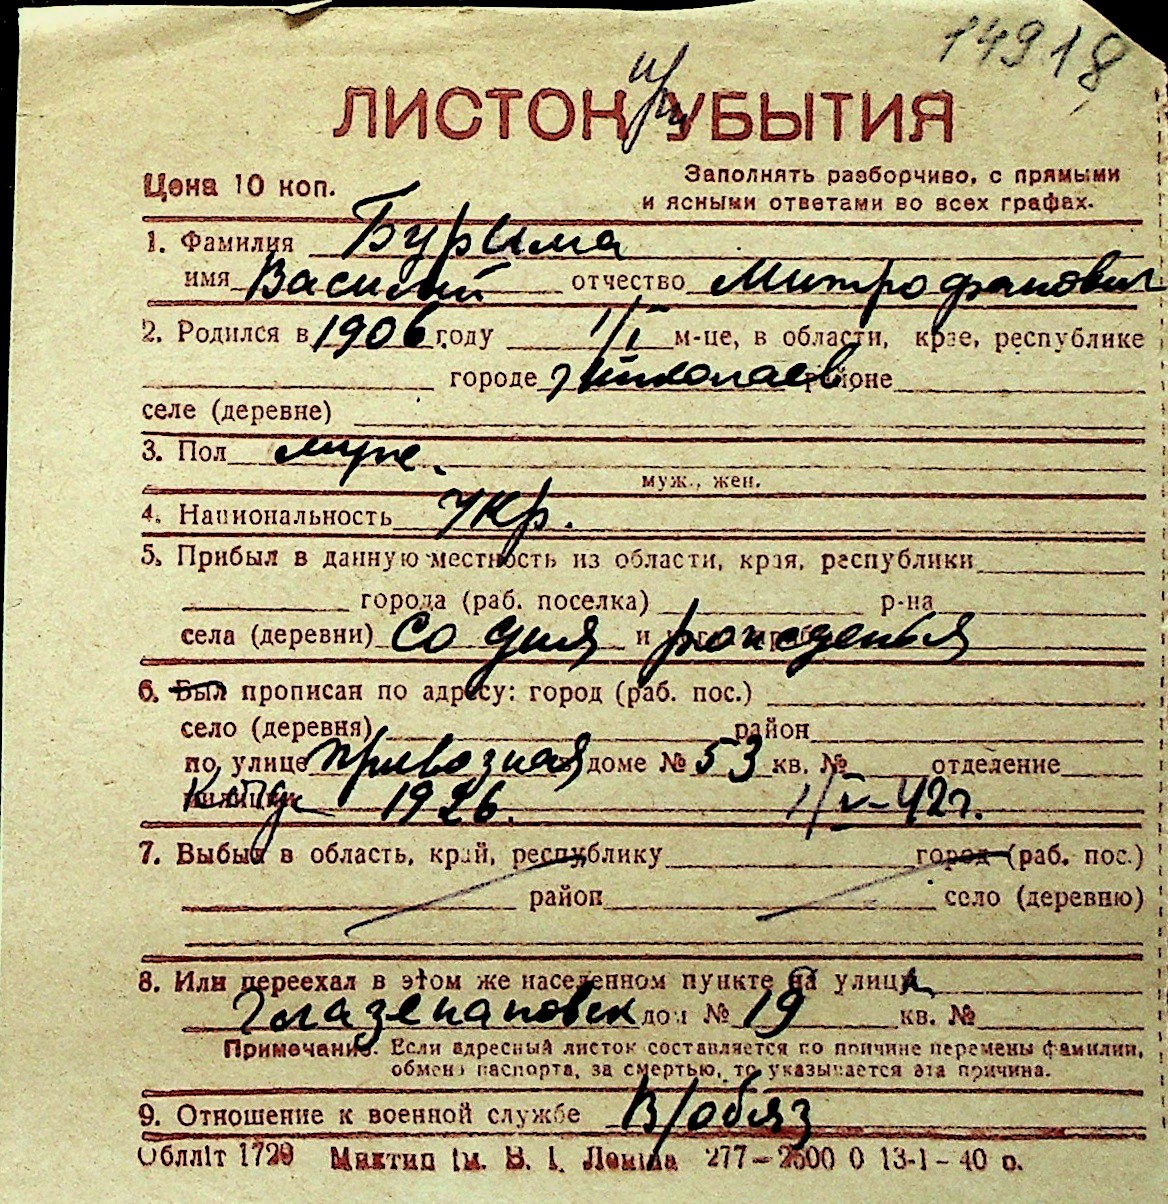 14918
ЛИСТОК УБЫТИЯ
Цена 10 коп.
Заполнять разборчиво, с прямыми
и ясными ответами во всех графах.
1. Фамилия Бурыма
имя Василий отчество Митрофанович
2. Родился в 1906 году 1/I м-це, в области, крае, республике
городе г Николаев районе
селе (деревне)
3. Пол муж.
муж., жен.
4. Национальность Укр.
5. Прибыл в данную местность из области, края, республики
города (раб. поселка) р-на
села (деревни) со дня и рожденья
6. Был прописан по адресу: город (раб. пос.)
село (деревня) район
по улице Привозная доме № 53 кв. № отделение
милиции 1926. 1/V-42г.
7. Выбыл в область, край, республику город (раб. пос.)
район село (деревню)
8. Или переехал в этом же населенном пункте на улицу
Глазенаповск дом № 19 кв. №
Примечание. Если адресный листок составляется по причине перемены фамилии,
обмена паспорта, за смертью, то указывается эта причина.
9. Отношение к военной службе В/обяз
Обллiт 1729 Миктип iм. В. I. Ленiна 277-2500 0 13-1-40 р.